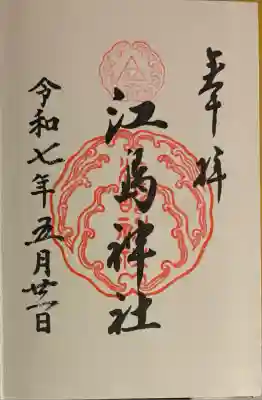 奉拝
江島神社
令和七年五月 日